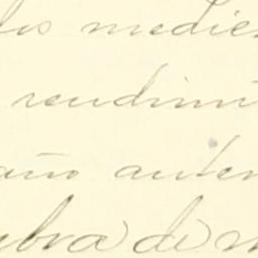 los medie
rendimi
año anter
bra de m